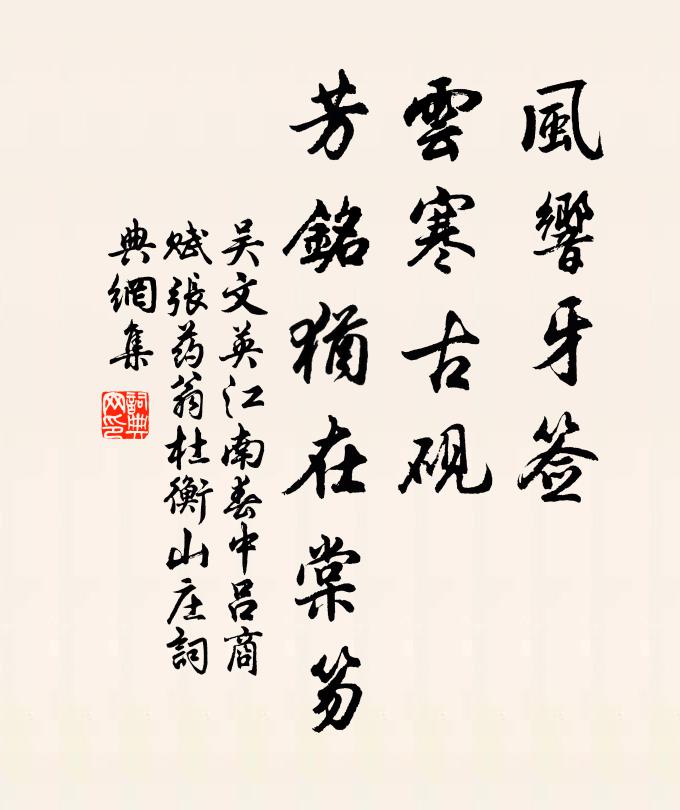 風響牙签
雲寒古砚
芳銘猶在棠笏
吴文英江南春中吕商
赋張药翁杜衡山庄詞
典網集
詞典网印